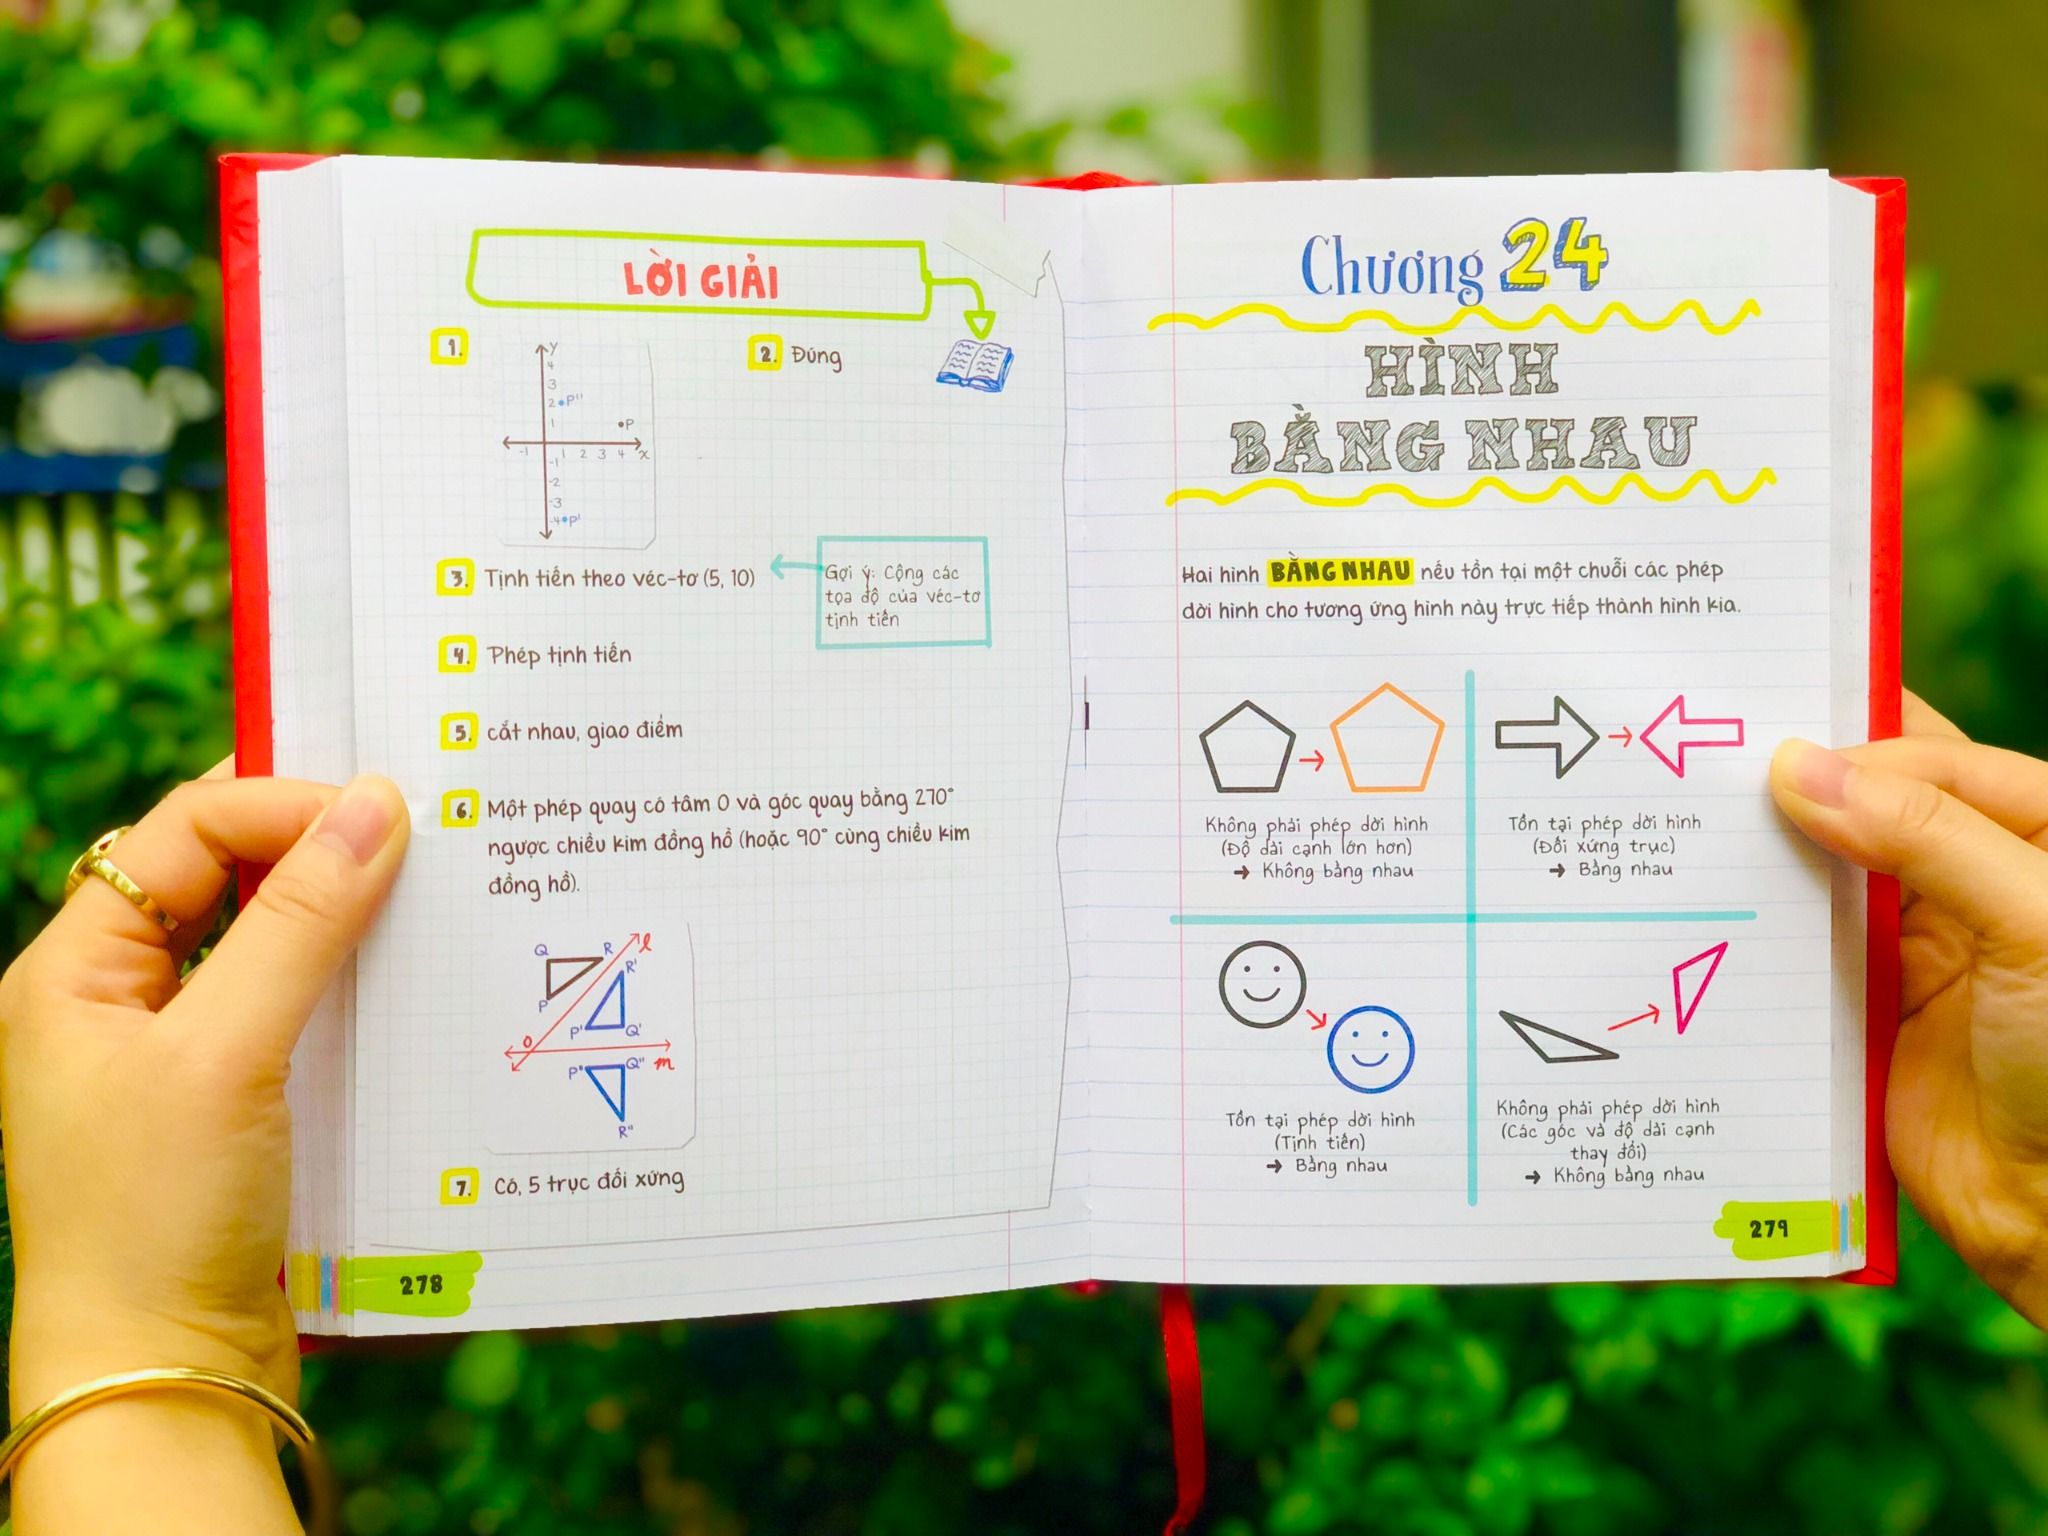 LỜI GIẢI
1.
y
4
3
2 P''
1 P
-1 1 2 3 4 x
-1
-2
-3
-4 P'
2. Đúng
3. Tịnh tiến theo véc-tơ (5, 10)
Gợi ý: Cộng các
tọa độ của véc-tơ
tịnh tiến
4. Phép tịnh tiến
5. cắt nhau, giao điểm
6. Một phép quay có tâm O và góc quay bằng 270°
ngược chiều kim đồng hồ (hoặc 90° cùng chiều kim
đồng hồ).
Q R l
R'
P
P' Q'
O
P'' Q'' m
R''
7. Có, 5 trục đối xứng
278
Chương 24
HÌNH
BẰNG NHAU
Hai hình BẰNG NHAU nếu tồn tại một chuỗi các phép
dời hình cho tương ứng hình này trực tiếp thành hình kia.
Không phải phép dời hình
(Độ dài cạnh lớn hơn)
→ Không bằng nhau
Tồn tại phép dời hình
(Đối xứng trục)
→ Bằng nhau
Tồn tại phép dời hình
(Tịnh tiến)
→ Bằng nhau
Không phải phép dời hình
(Các góc và độ dài cạnh
thay đổi)
→ Không bằng nhau
279